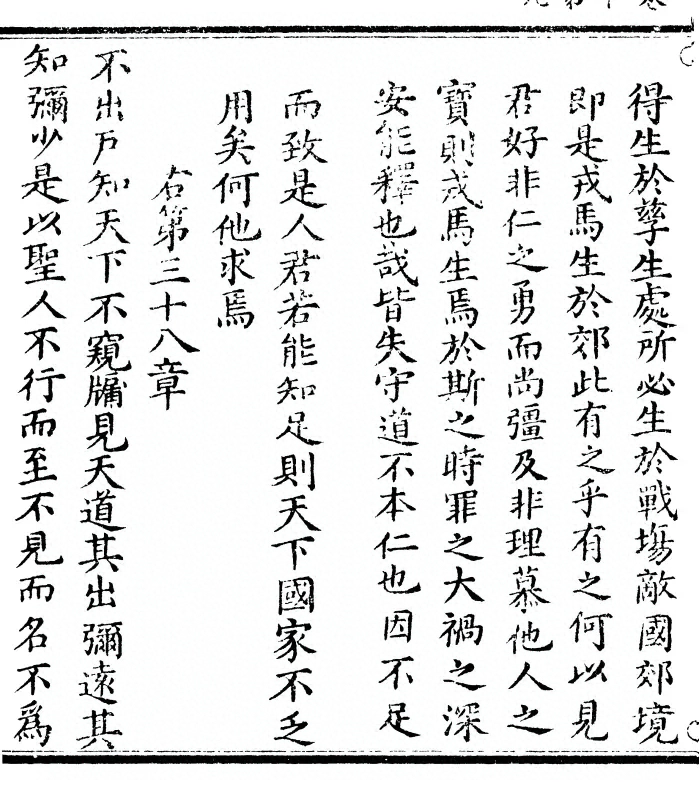 得生於孳生處所必生於戰場敵國郊境
即是戎馬生於郊此有之乎有之何以見
君好非仁之勇而尚彊及非理慕他人之
寶則戎馬生焉於斯之時罪之大禍之深
安能釋也哉皆失守道不本仁也因不足
而致是人君若能知足則天下國家不乏
用矣何他求焉
右第三十八章
不出戶知天下不窺牖見天道其出彌遠其
知彌少是以聖人不行而至不見而名不爲